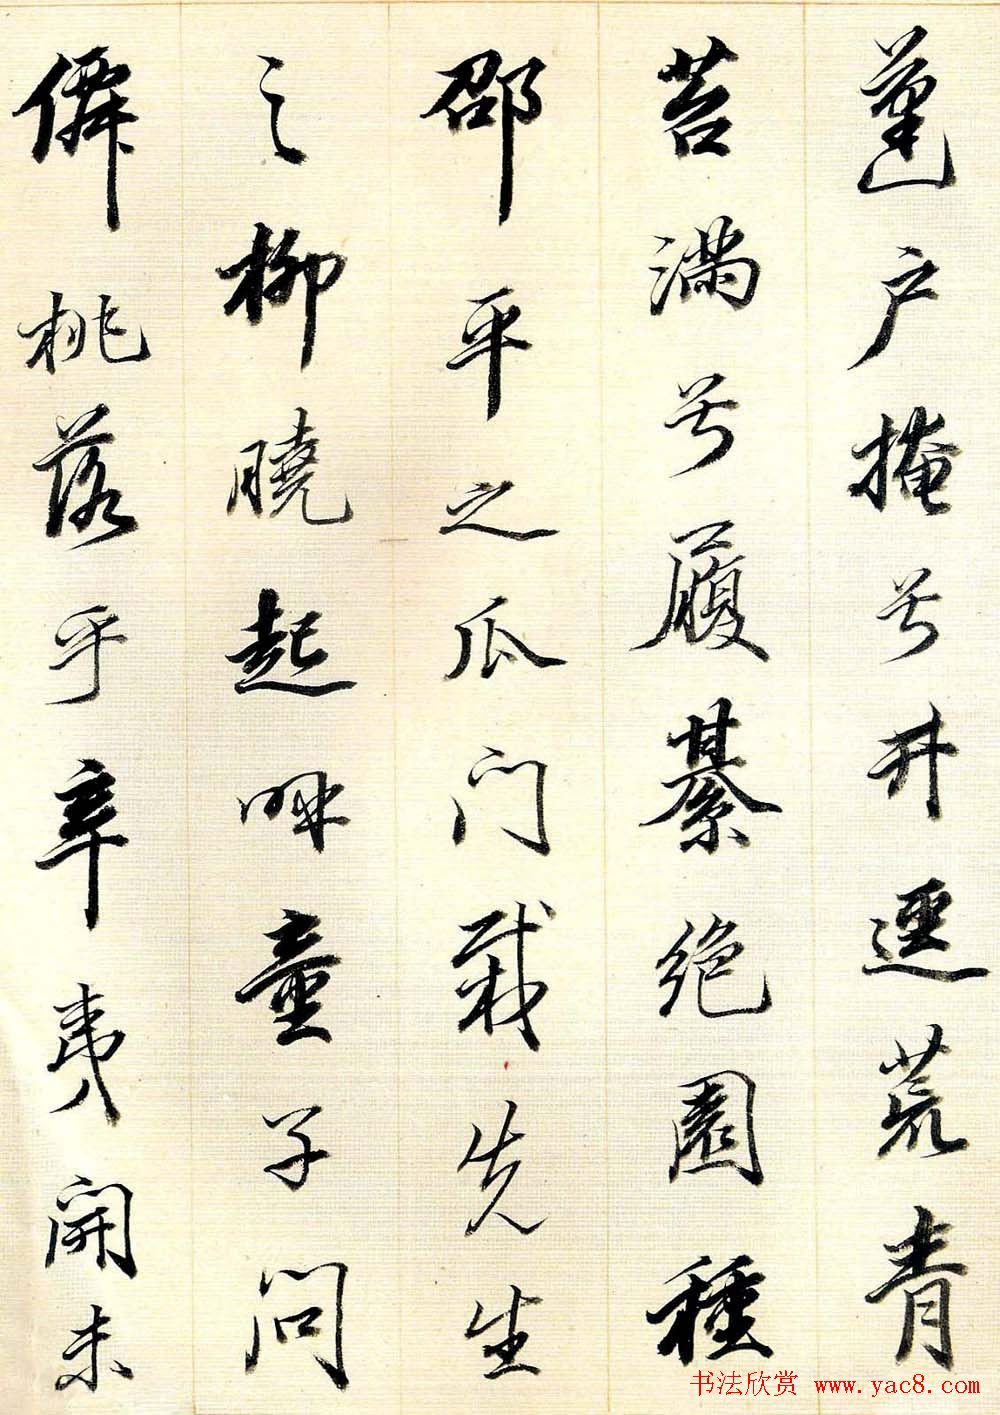 蓬户掩兮井逕荒青
苔滿兮履綦絕園種
邵平之瓜門栽先生
之柳曉起呼童子問
僊桃落乎辛夷開未
书法欣赏 www.yac8.com